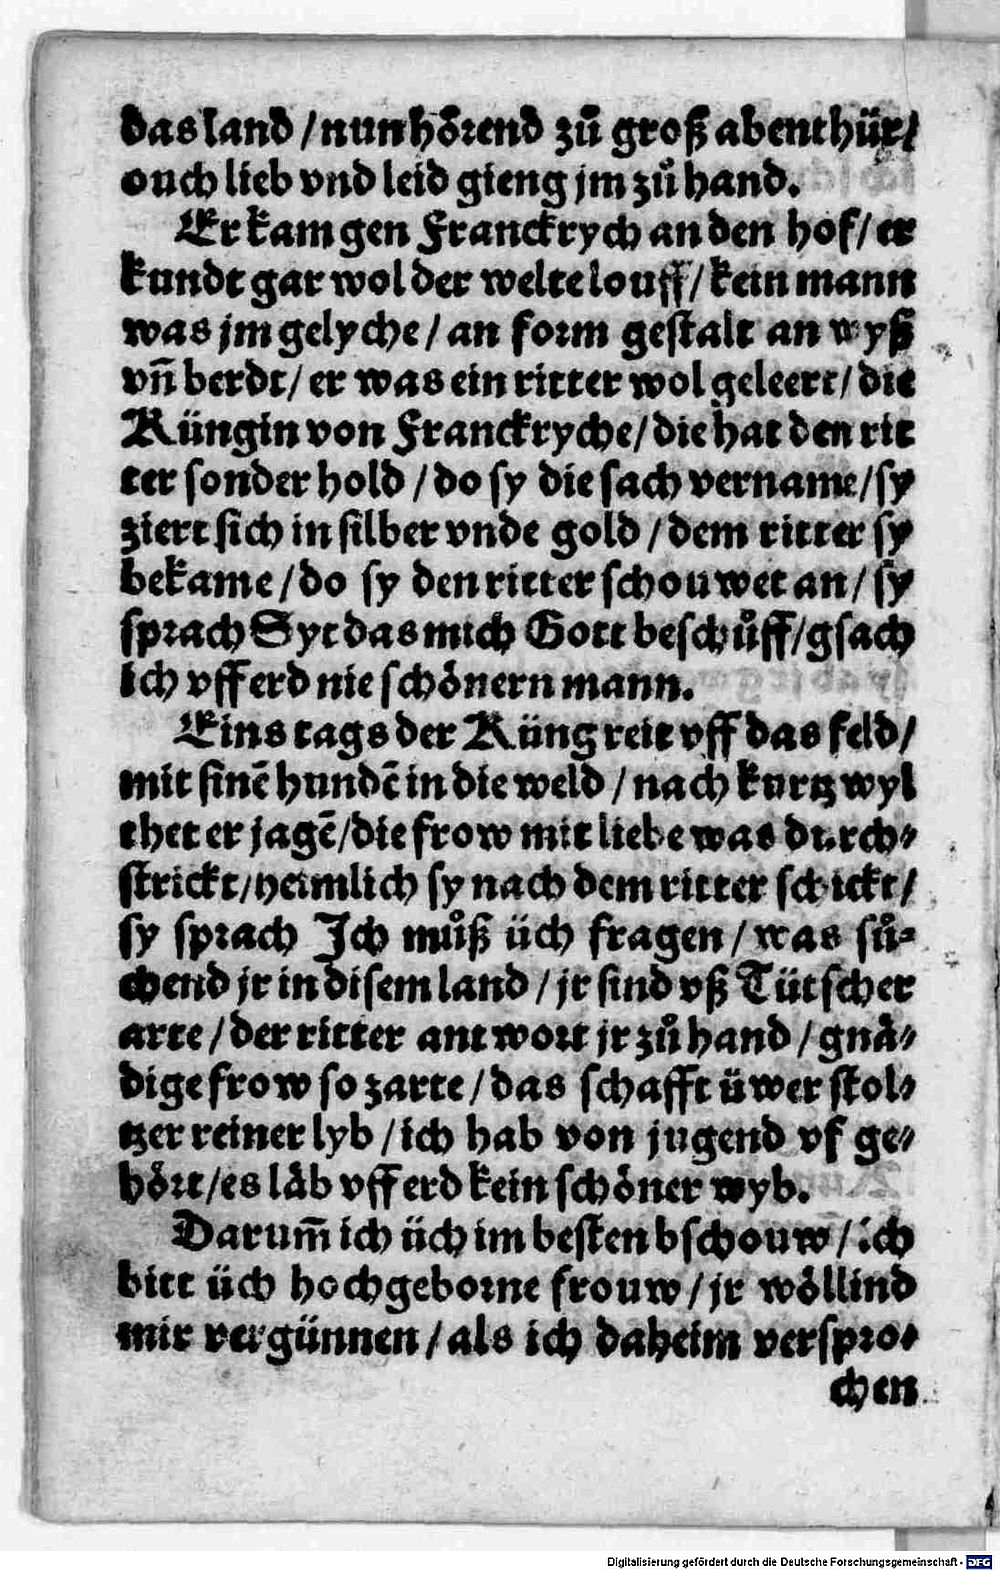 das land / nun hoͤrend zuͦ groß abenthür/
ouch lieb vnd leid gieng jm zuͦ hand.
Er kam gen Franckrych an den hof / er
kundt gar wol der welte louff / kein mann
was jm gelyche / an form gestalt an wyß
vñ berdt / er was ein ritter wol geleert / die
Küngin von Franckryche / die hat den rit
ter sonder hold / do sy die sach vername / sy
ziert sich in silber vnde gold / dem ritter sy
bekame / do sy den ritter schouwet an / sy
sprach Syt das mich Gott beschuͦff / gsach
ich vff erd nie schoͤnern mann.
Eins tags der Küng reit vff das feld /
mit sinē hundē in die weld / nach kurtzwyl
thet er jagē / die frow mit liebe was durch⸗
strickt / heimlich sy nach dem ritter schickt /
sy sprach Ich muͦß üch fragen / was suͦ⸗
chend jr in disem land / jr sind vß Tütscher
arte / der ritter antwort jr zuͦ hand / gnaͤ⸗
dige frow so zarte / das schafft üwer stol⸗
tzer reiner lyb / ich hab von jugend vf ge⸗
hoͤrt / es laͤb vff erd kein schoͤner wyb.
Darum̄ ich üch im besten bschouw / ich
bitt üch hochgeborne frouw / jr woͤllind
mir vergünnen / als ich daheim verspro⸗
chen
Digitalisierung gefördert durch die Deutsche Forschungsgemeinschaft - DFG